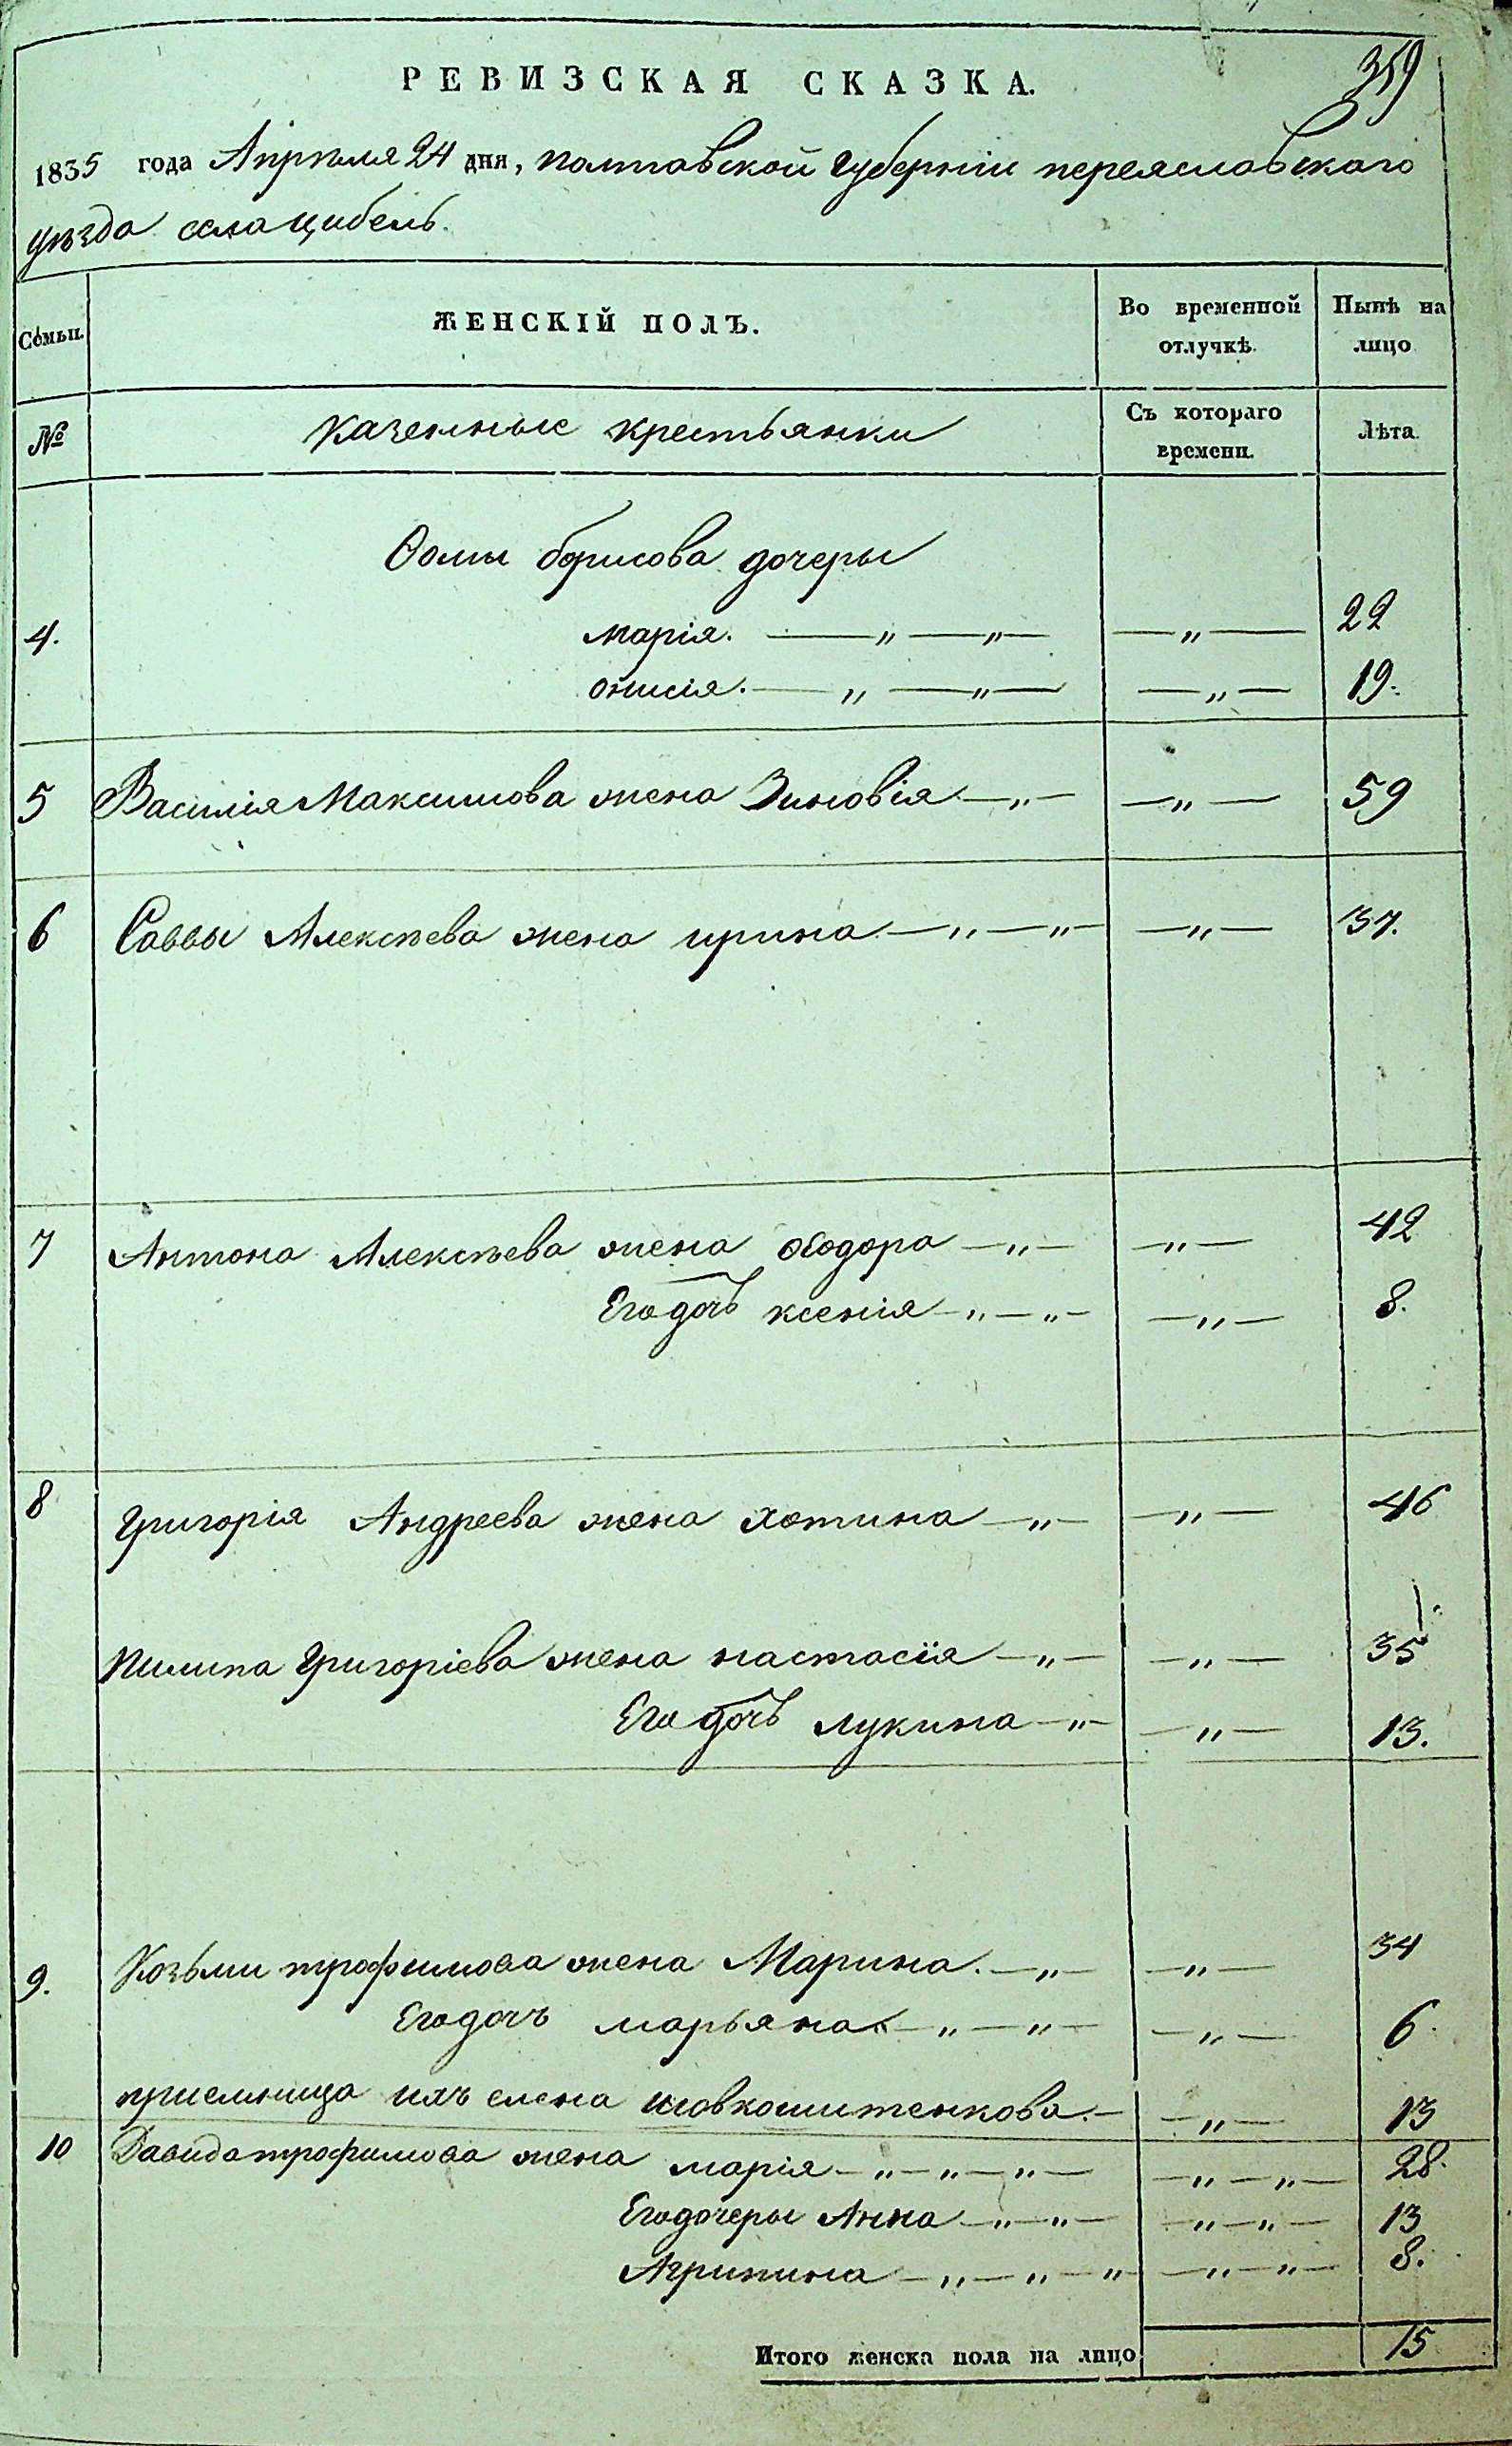 359
РЕВИЗСКАЯ СКАЗКА.
1835 года Апрѣля 24 дня, полтавской губерніи переяславского
уѣзда села цибель.
Семьи. ЖЕНСКІЙ ПОЛЪ. Во временной отлучкѣ. Нынѣ на лицо
№ Казенные крестьянки Съ котораго времени. Лѣта.
Ѳомы борисова дочеры
4. марія. — „ — „ — — „ — 22
онисія. — „ — „ — — „ — 19.
5 Василія Максимова жена Зиновія — „ — — „ — 59
6 Саввы Алексѣева жена ирина — „ — „ — — „ — 37.
7 Антона Алексѣева жена ѳеодора — „ — — „ — 42
Его дочь ксенія — „ — „ — — „ — 8.
8 Григорія Андреева жена хотина — „ — — „ — 46
пилипа Григоріева жена настасія — „ — — „ — 35
Его дочь лукина — „ — — „ — 13.
9. Козьми трофимова жена Марина. — „ — — „ — 34
Его дочь марьяна — „ — „ — — „ — 6.
приемница ихъ елена шовкошитенкова. — — „ — 13
10 Давида трофимова жена марія — „ — „ — „ — — „ — „ — 28.
Его дочеры Анна — „ — „ — — „ — „ — 13
Агрипина — „ — „ — „ — „ — „ — 8.
Итого женска пола на лицо 15